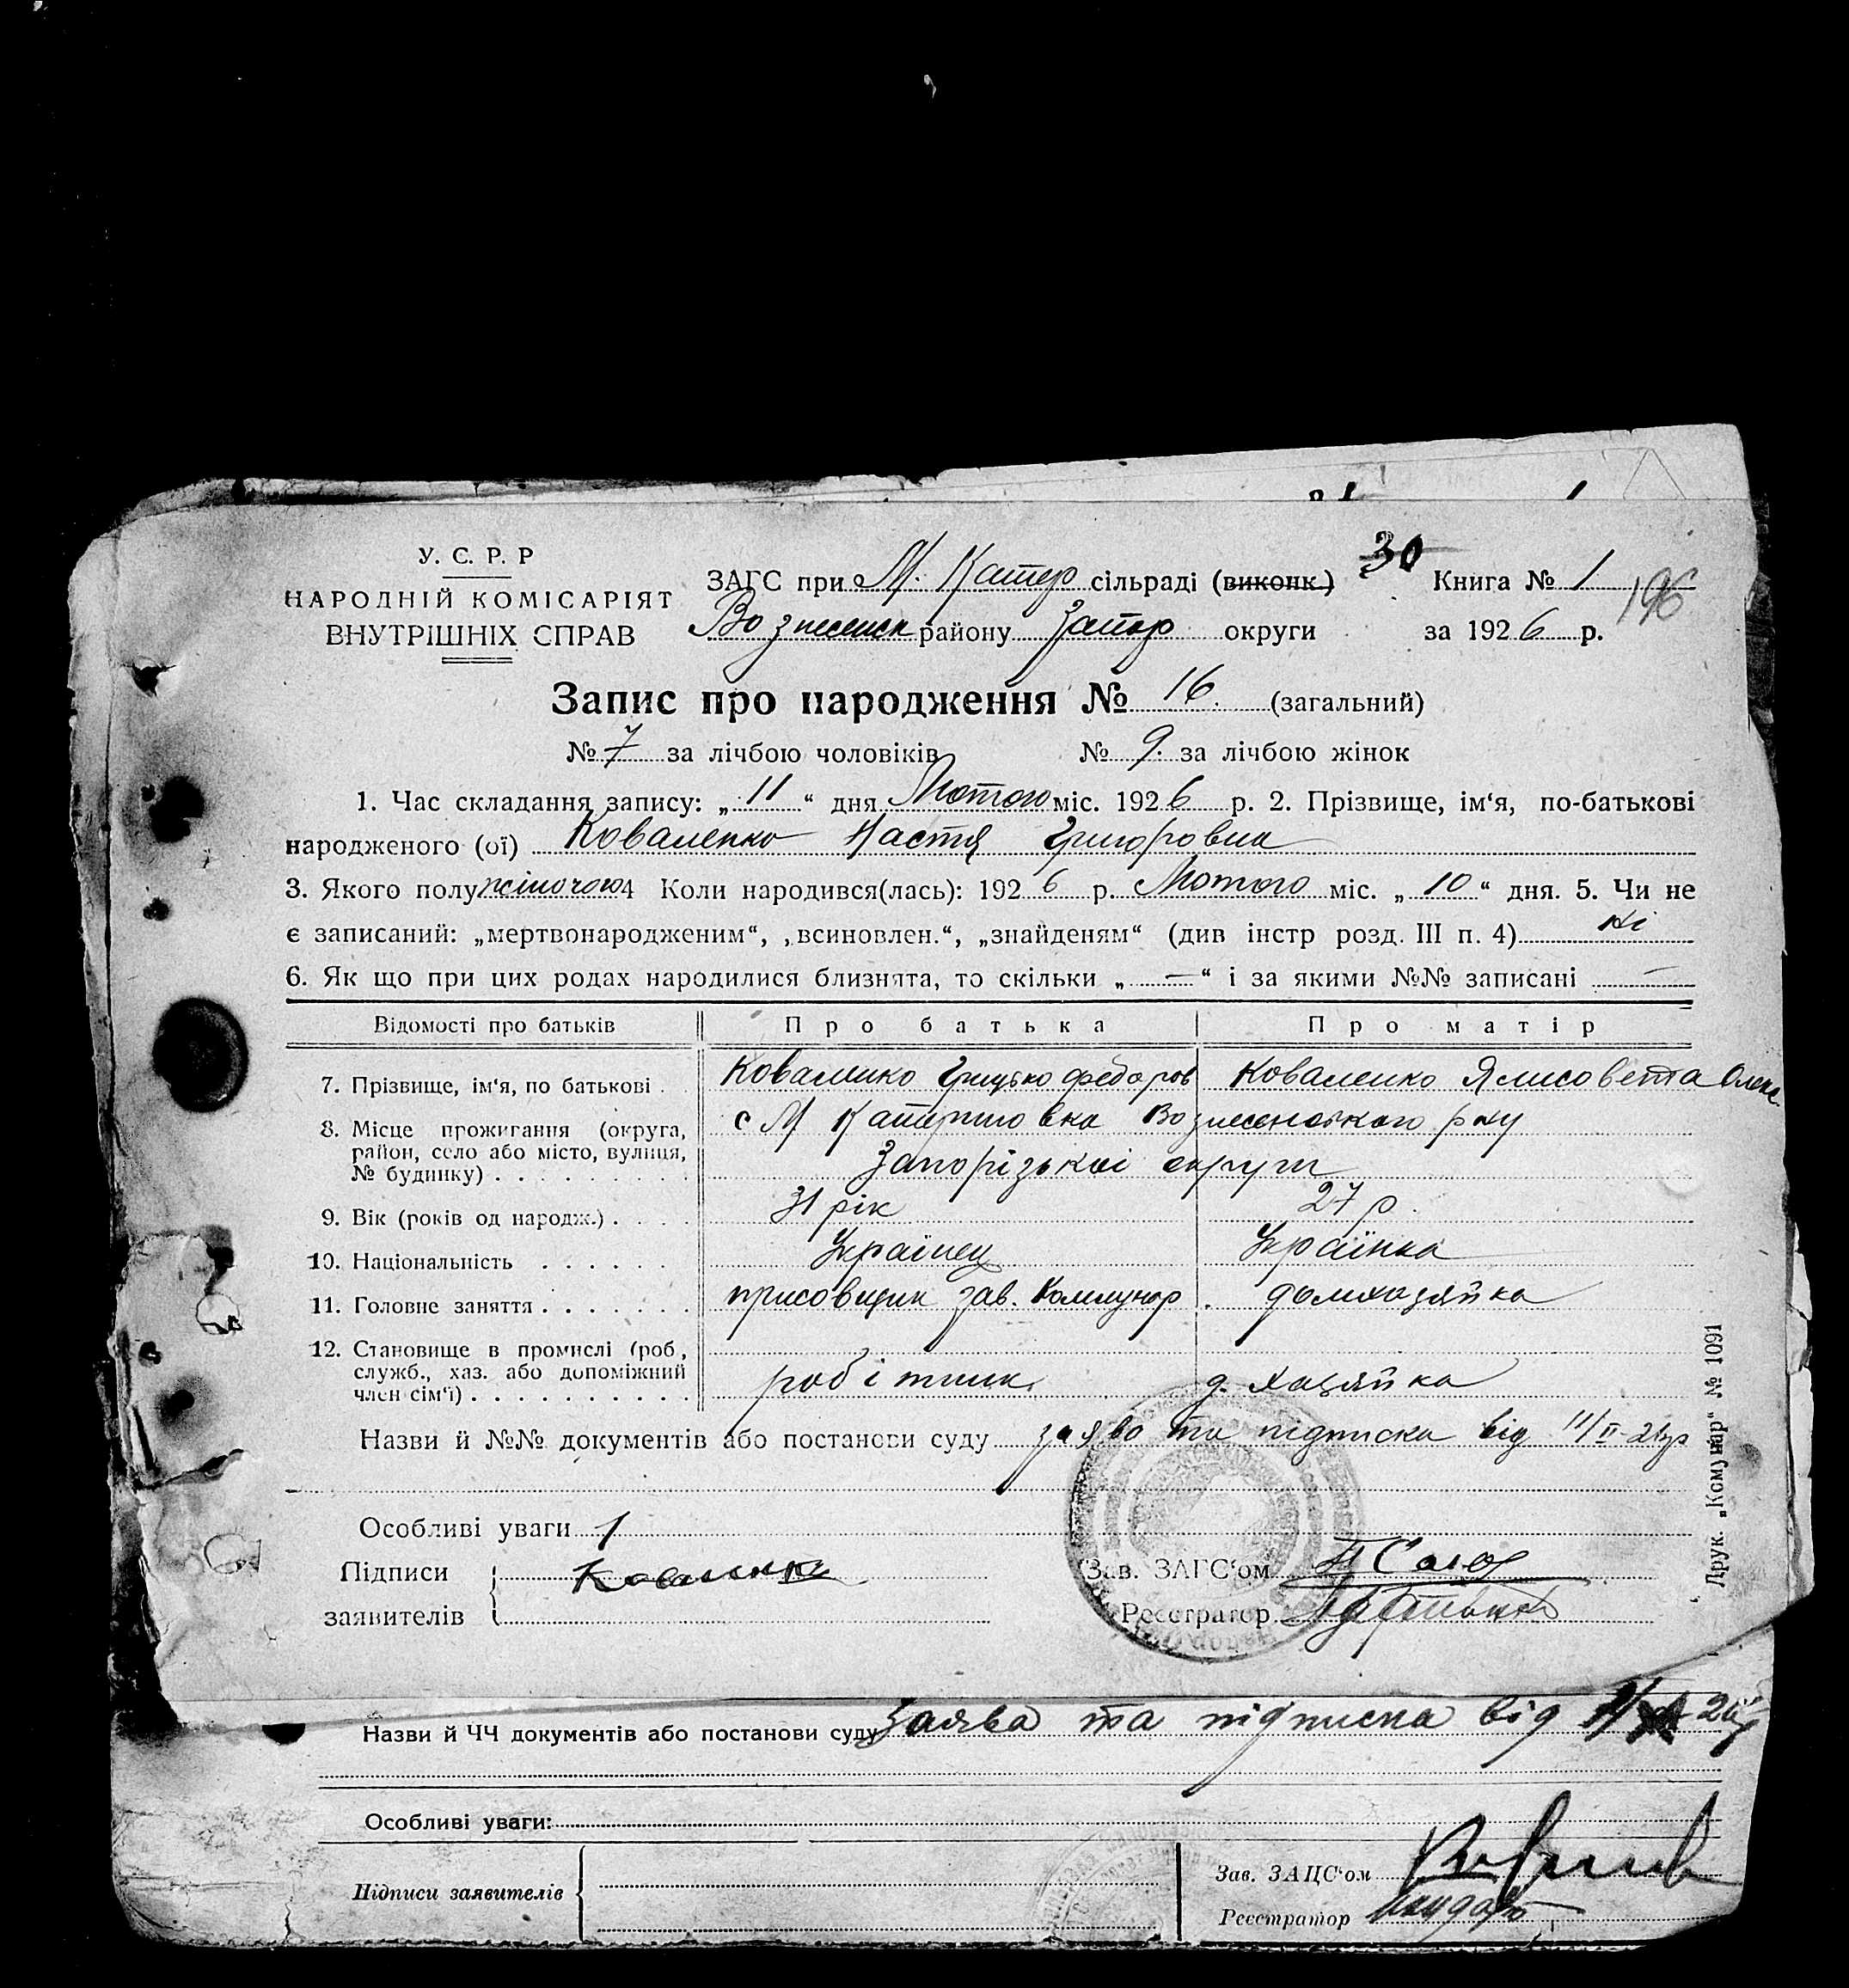 У. С. Р. Р
НАРОДНІЙ КОМІСАРІЯТ
ВНУТРІШНІХ СПРАВ
ЗАГС при М. Катер сільраді (виконк.) 30 Книга № 1
196
Вознесенск району Запор округи за 1926 р.
Запис про народження № 16. (загальний)
№ 7 за лічбою чоловіків № 9. за лічбою жінок
1. Час складання запису: „11“ дня Лютого міс. 1926 р. 2. Прізвище, ім‘я, по-батькові
народженого (ої) Коваленко Настя Григоровна
3. Якого полу жіночого 4 Коли народився(лась): 1926 р. Лютого міс. „10“ дня. 5. Чи не
є записаний: „мертвонародженим“, „всиновлен.“, „знайденям“ (див інстр розд. III п. 4) ні
6. Як що при цих родах народилися близнята, то скільки „—“ і за якими №№ записані —
Відомості про батьків Про батька Про матір
7. Прізвище, ім‘я, по батькові Коваленко Грицько Федоров Коваленко Ялисовета Олекс
8. Місце прожигання (округа, район, село або місто, вулиця, № будинку) с М Катериновка Вознесенського р ну
Запорізькоі округи
9. Вік (років од народж.) 31 рік 27 р.
10. Національність Українец Українка
11. Головне заняття присовщик зав. Коммунар домхазяйка
12. Становище в промислі (роб, служб., хаз. або допоміжний член сім‘ї) робітник д. хазяйка
Назви й №№ документів або постанови суду заяво та підписка від 11/II-26р
Особливі уваги
Підписи заявителів Коваленко
Зав. ЗАГС‘ом
Реєстратор
Друк. „Комунар“ № 1091
Назви й ЧЧ документів або постанови суду Заява та підписка від
Особливі уваги:
Підписи заявителів
Зав. ЗАЦС‘ом
Реєстратор